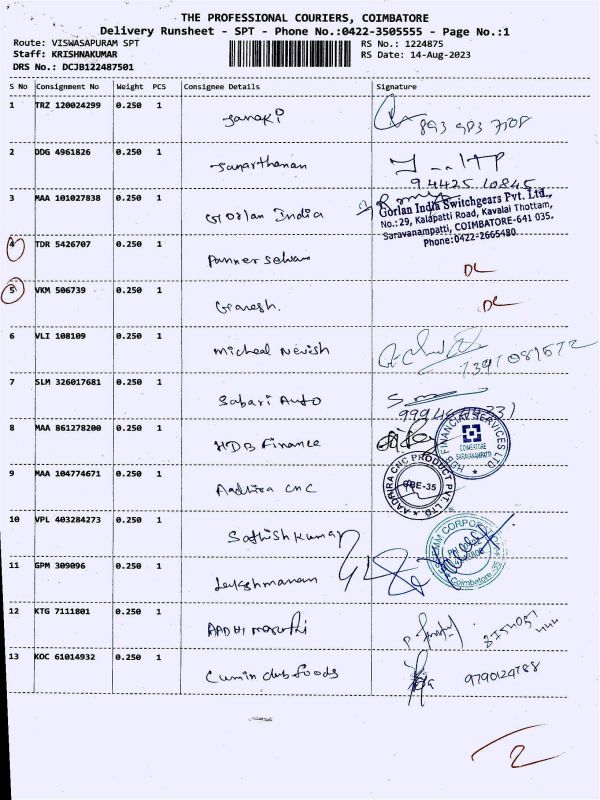 THE PROFESSIONAL COURIERS, COIMBATORE
Delivery Runsheet - SPT - Phone No.:0422-3505555 - Page No.:1
Route: VISWASAPURAM SPT
RS No.: 1224875
Staff: KRISHNAKUMAR
RS Date: 14-Aug-2023
DRS No.: DCJB122487501
S No Consignment No Weight PCS Consignee Details Signature
1 TRZ 120024299 0.250 1 Janaki 893 983 7108
2 DDG 4961826 0.250 1 Janarthanan
94425 10845
3 MAA 101027838 0.250 1 Gorlan India
Gorlan India Switchgears Pvt. Ltd.,
No.:29, Kalapatti Road, Kavalai Thottam,
Saravanampatti, COIMBATORE-641 035.
Phone:0422-2665480
4 TDR 5426707 0.250 1 Panner selvam DL
5 VKM 506739 0.250 1 Ganesh DL
6 VLI 108109 0.250 1 Micheal Nevish
7 SLM 326017681 0.250 1 Sabari Auto
8 MAA 861278200 0.250 1 HDB Finance
HDB FINANCIAL SERVICES LTD
COIMBATORE
SARAVANAMPATTI
9 MAA 104774671 0.250 1 Aadhira CNC
AADHIRA CNC PRODUCT PVT. LTD.
CBE-35
10 VPL 403284273 0.250 1 Sathish Kumar
CORPORATION
Coimbatore-35
11 GPM 309096 0.250 1 Lakshmanan
12 KTG 7111801 0.250 1 AADHI Maruthi
13 KOC 61014932 0.250 1 Cumin club foods 9790124788
2